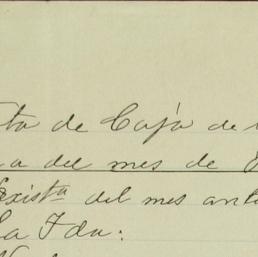 ta de Caja de
a del mes de
Existª del mes ant
La Ida: